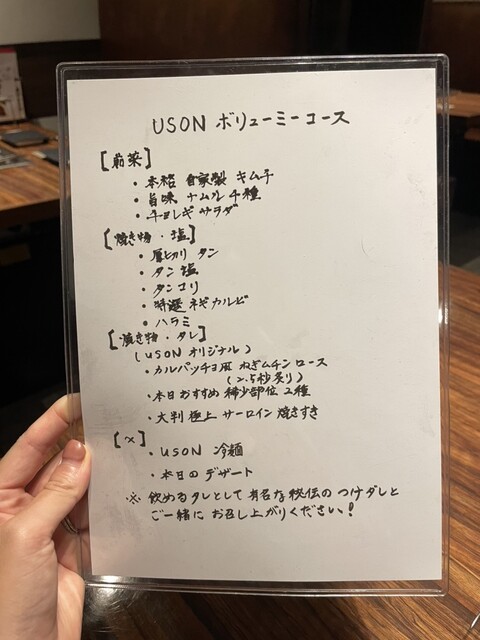 USON ボリューミーコース
[前菜]
・本格 自家製 キムチ
・旨味 ナムル 4種
・チョレギサラダ
[焼き物・塩]
・厚切り タン
・タン塩
・タンコリ
・特選 ネギカルビ
・ハラミ
[焼き物・タレ]
(USON オリジナル)
・カルパッチョ風 ねぎムチンロース
(2.5秒炙り)
・本日おすすめ 稀少部位 2種
・大判 極上 サーロイン 焼きすき
[〆]
・USON 冷麺
・本日の デザート
※ 飲めるタレとして 有名な 秘伝の つけダレと
ご一緒に お召し上がりください!